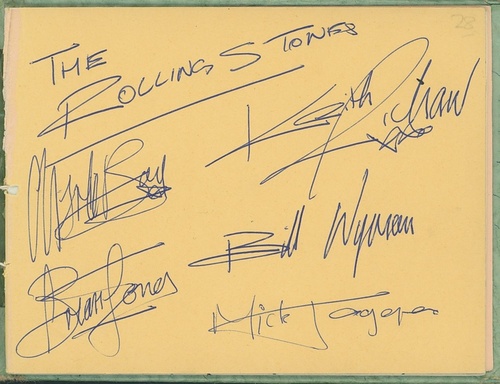 THE
ROLLING STONES
Keith Richard
Bill Wyman
Brian Jones
Mick Jagger